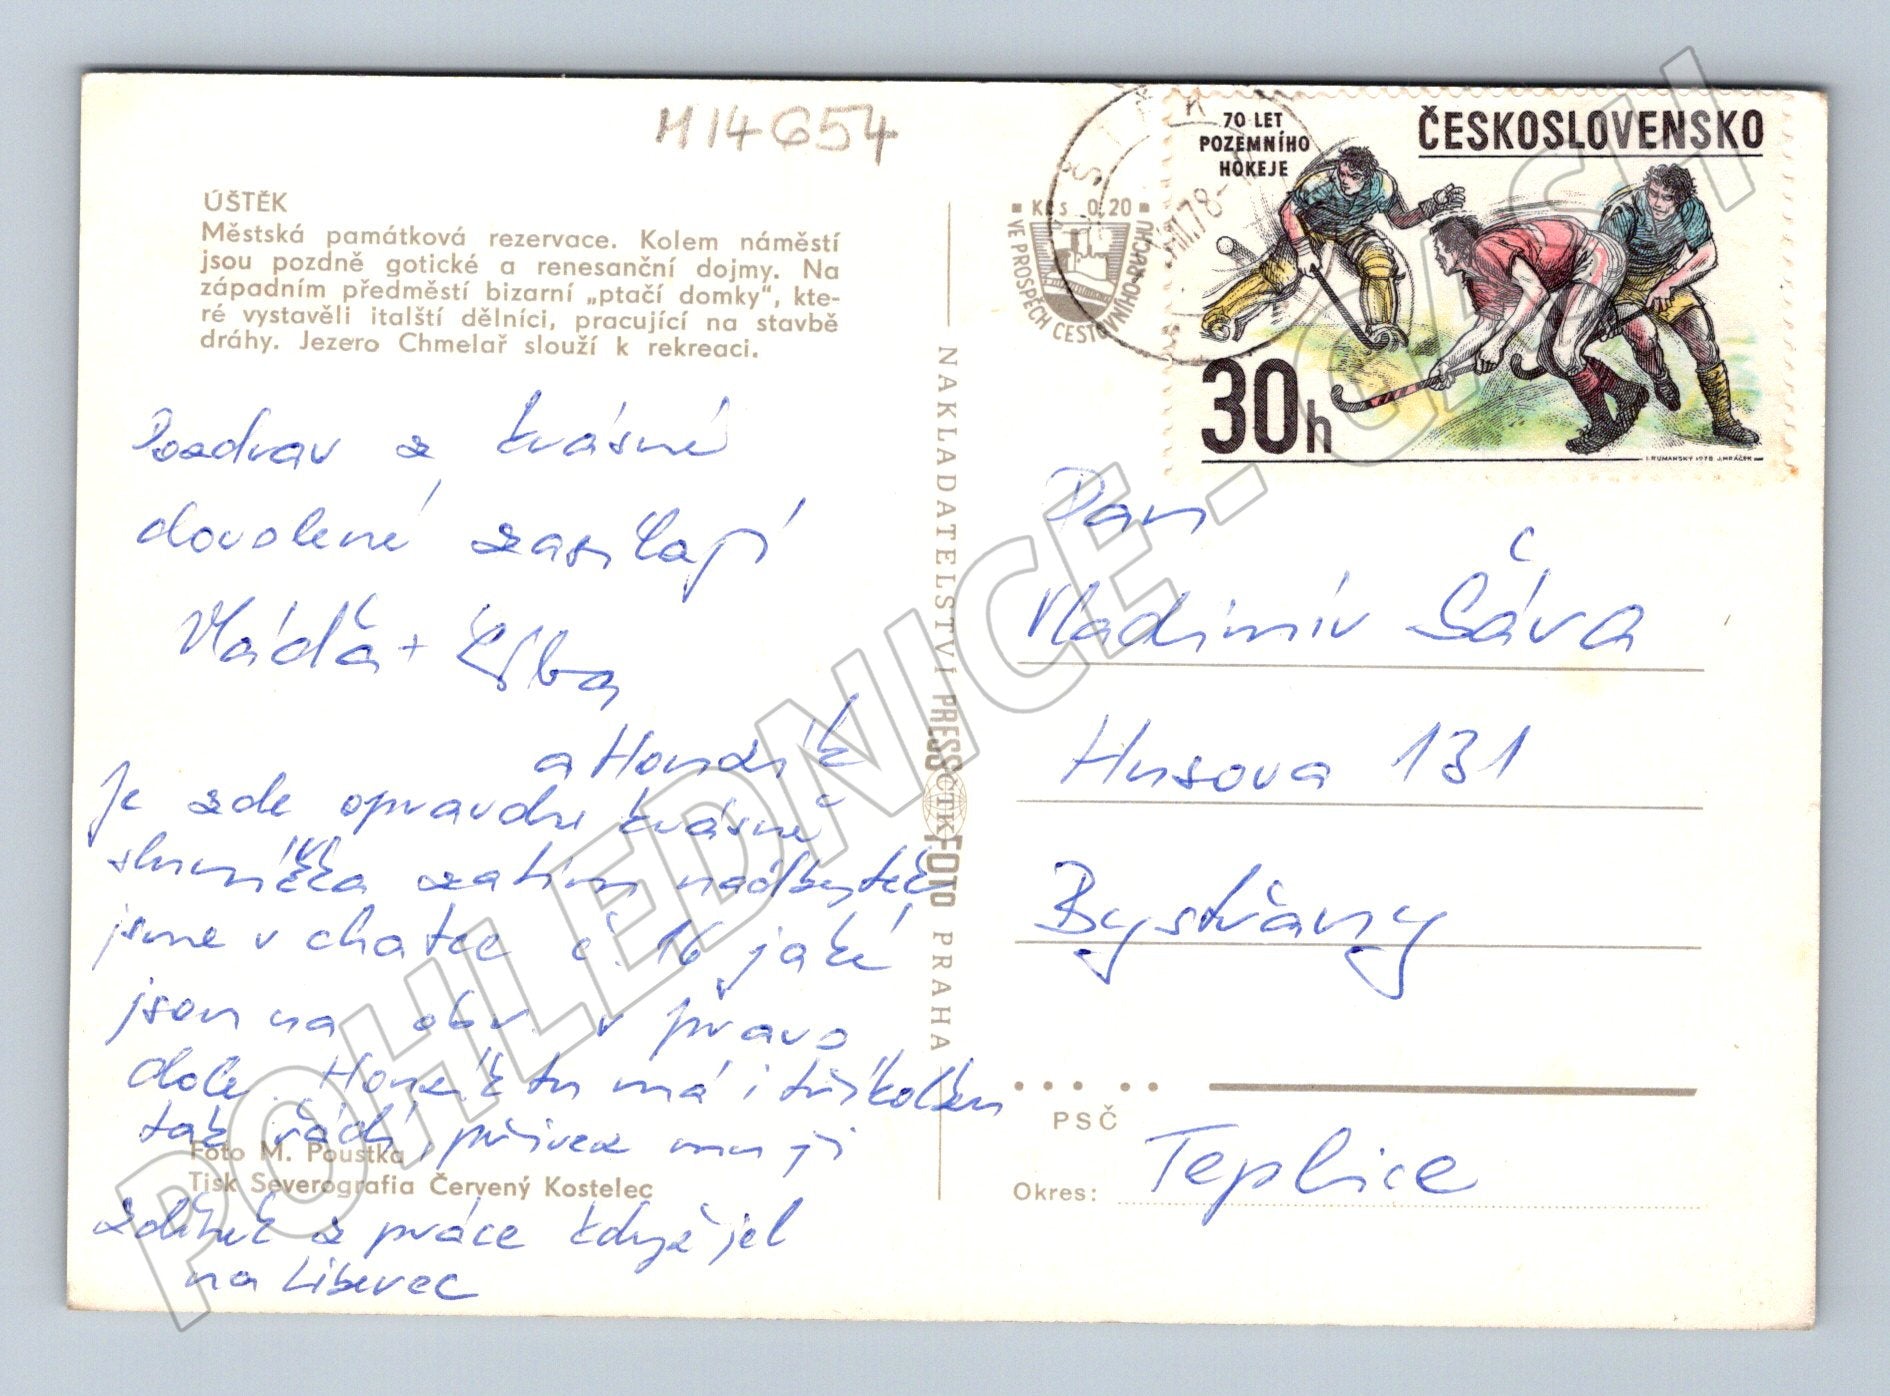 M14G54
ÚŠTĚK
Městská památková rezervace. Kolem náměstí
jsou pozdně gotické a renesanční dojmy. Na
západním předměstí bizarní „ptačí domky“, kte-
ré vystavěli italští dělníci, pracující na stavbě
dráhy. Jezero Chmelař slouží k rekreaci.
Pozdrav z krásné
dovolené zasílají
Vláďa + Liba
a Honzík
Je zde opravdu krásně
sluníčka zatím nadbytek
jsme v chatce č. 16 jaké
jsou na obr. v pravo
dole. Honzík tu má i tříkolku
tak řádí, přivez mu ji
Foto M. Poustka
Tisk Severografia Červený Kostelec
z práce když jel
na Liberec
NAKLADATELSTVÍ PRESSFOTO PRAHA
ČTK
Kčs 0,20
VE PROSPĚCH CESTOVNÍHO RUCHU
70 LET
POZEMNÍHO
HOKEJE
ČESKOSLOVENSKO
30h
I. RUMANSKÝ 1978 J. MRÁČEK
Pan
Vladimír Sáva
Husova 131
Bystřany
PSČ
Okres: Teplice
POHLEDNICE-SASH